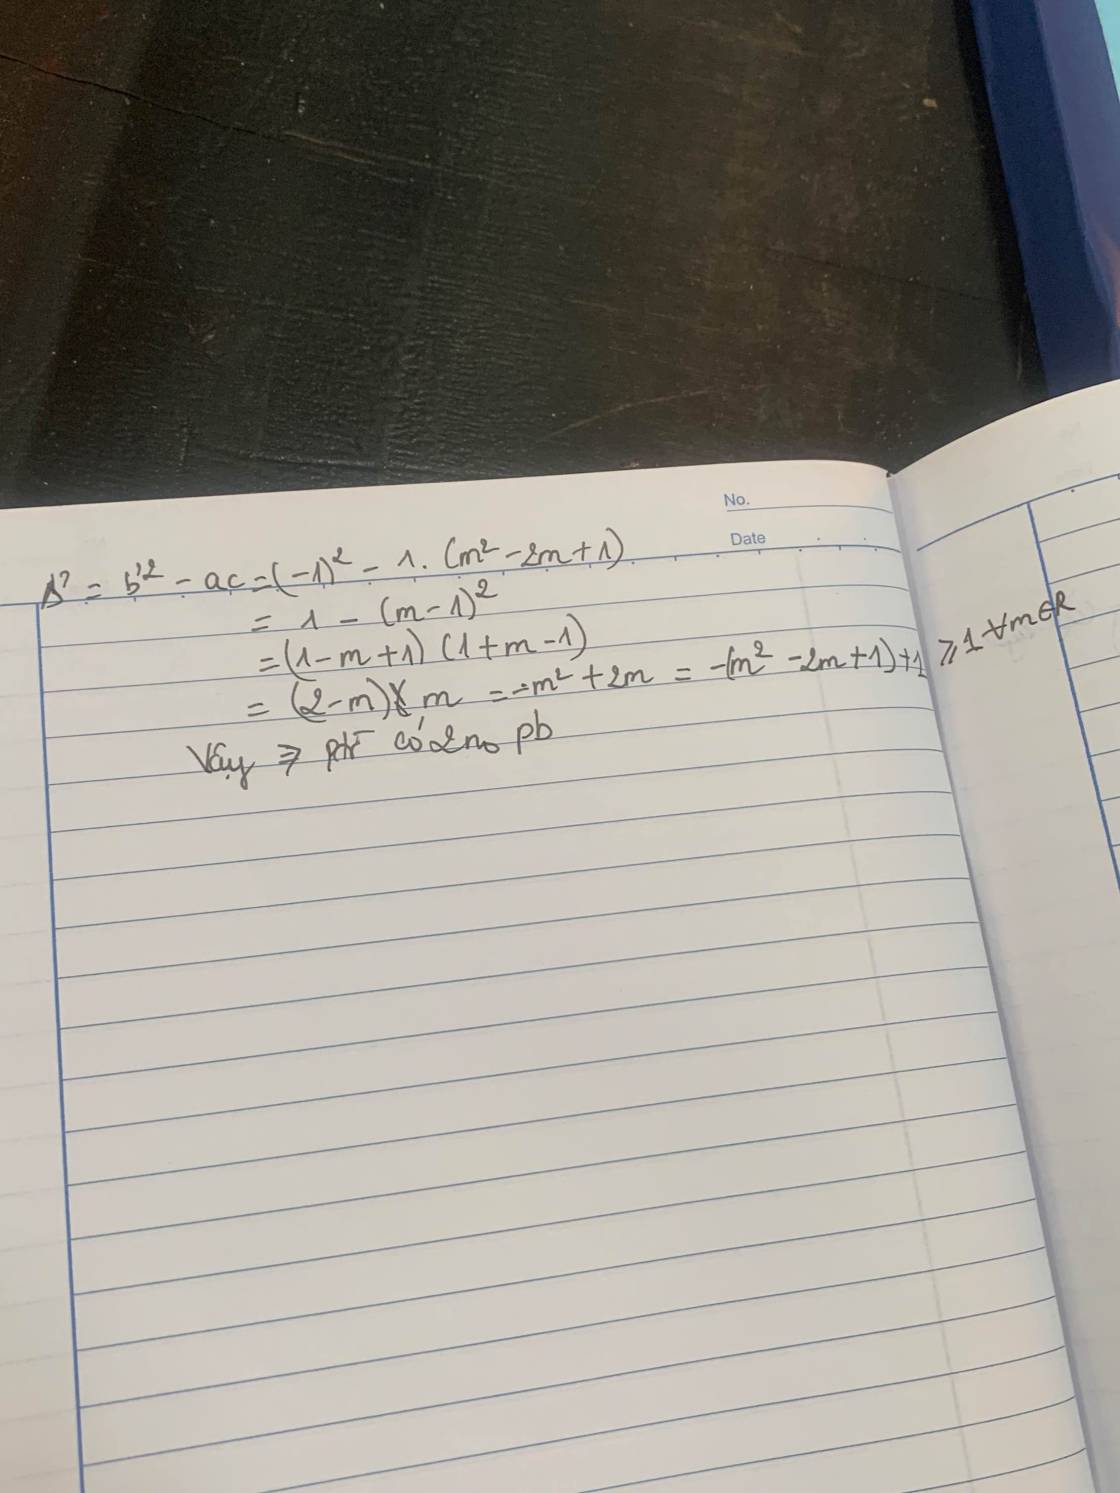 No.
Date
Δ' = b'² - ac = (-1)² - 1. (m² - 2m + 1)
= 1 - (m - 1)²
= (1 - m + 1) (1 + m - 1)
= (2 - m) m = -m² + 2m = -(m² - 2m + 1) + 1 ≥ 1 ∀m∈R
Vậy ⇒ ptr có 2no pb